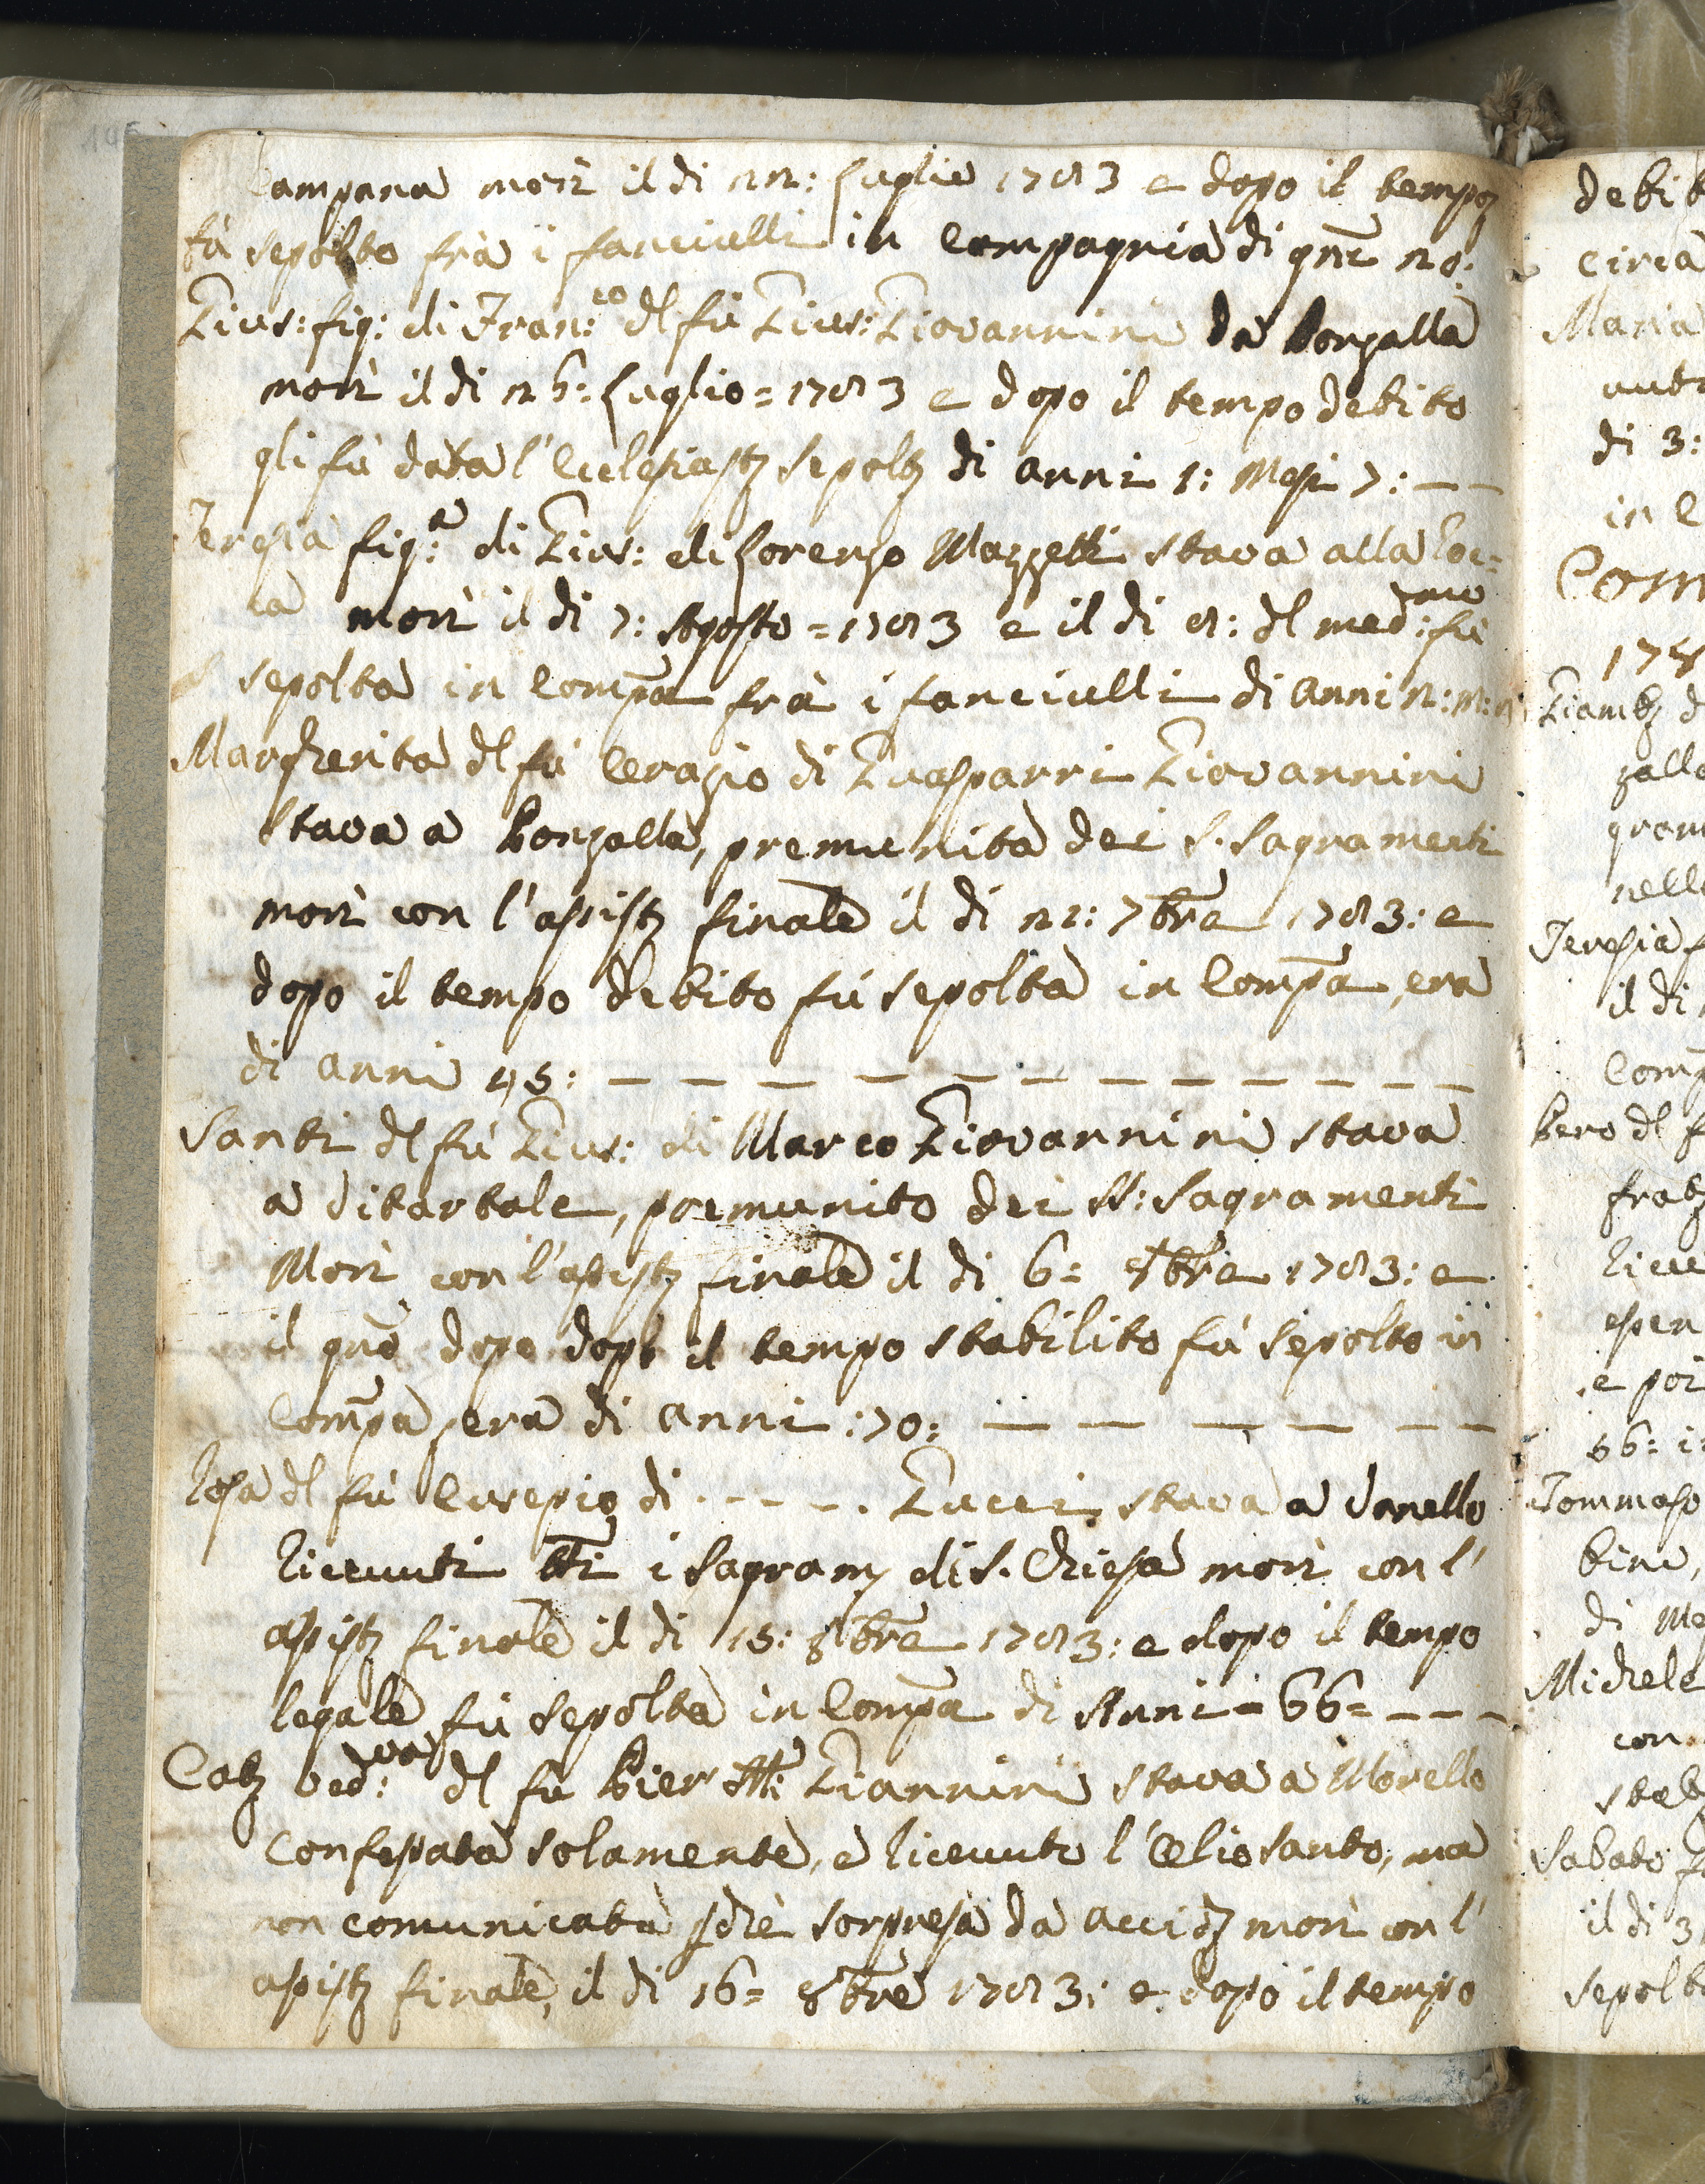 Campana morì il di 22: Luglio 1783 e dopo il tempo
fù sepolto frà i fanciulli in Compagnia di gni 20:
Gius: fig: di Fran:co dl fù Gius: Giovannini da Bonzalla
morì il di 26: Luglio = 1783 e dopo il tempo debito
gli fù data l'Eclesiasta sepolta di anni 1: Mesi 7: — —
Teresia fig:a di Gius: di Lorenzo Mazzetti stava alla Roc=
ca morì il di 7: Agosto = 1783 e il di 8: dl med:mo fù
sepolta in Compa frà i fanciulli di anni 2: m:
Margherita dl fù Cerazio di Guasparri Giovannini
stava a Bonzalla, premunita dei S. Sagramenti
morì con l'assista finale il di 21: 7bre 1783: e
dopo il tempo debito fù sepolta in Compa, era
di anni 45: — — — — — — — — — — —
Santi dl fù Gius: di Marco Giovannini stava
a Vitartale, premunito dei SS: Sagramenti
Morì con l'assista finale il di 6: 8bre 1783: e
il que dopo dopo il tempo stabilito fù sepolto in
Compa, era di anni :70: — — — — — —
Rosa dl fù Eusepio di . - - - . Gucci stava a Vanello
Ricevuti tti i Sagram di S. Chiesa morì con l'
assista finale il di 15: 8bre 1783: e dopo il tempo
legale fù sepolta in Compa di Anni = 66 = — — —
Cata ved:va dl fù Pier Att: Giannini stava a Morello
Confessata solamente, e Ricevuto l'Olio santo, ma
non comunicata pchè sorpresa da accidte morì con l'
assista finale, il di 16 = 8bre 1783: e dopo il tempo
debit
circa
Maria
di 3:
in C
Com
178
Giamba d
zalla
nell
Teresia f
il di
Comp
Piero dl f
frat
Rice
e poi
66: i
Tommaso
bini,
di Me
Michele
con
stab
Sabato f
il di 3
sepolt